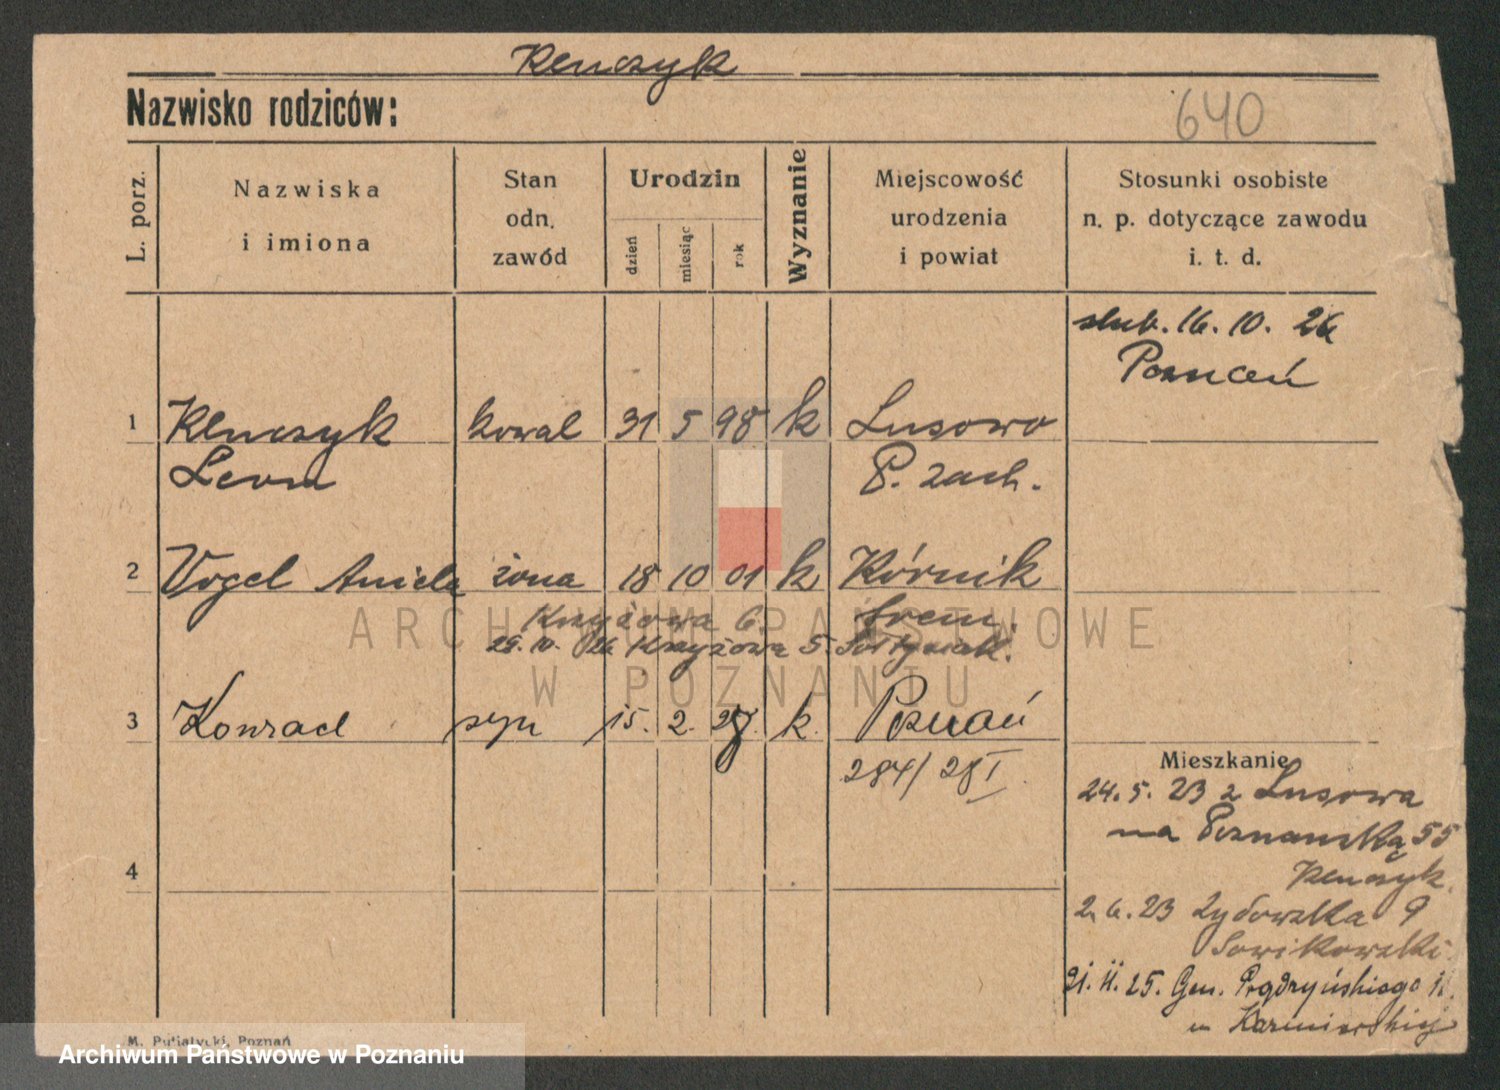 Klenczyk
Nazwisko rodziców:
640
L. porz.
Nazwiska
i imiona
Stan
odn.
zawód
Urodzin
dzień
miesiąc
rok
Wyznanie
Miejscowość
urodzenia
i powiat
Stosunki osobiste
n. p. dotyczące zawodu
i. t. d.
ślub. 16. 10. 26
Poznań
1 Klenczyk kowal 31 5 98 k Lusowo
Leon P. zach.
2 Vogel Aniela żona 18 10 01 k Kórnik
Krzyżowa 6. Śrem.
25. 10. 26 Krzyżowa 5.
3 Konrad syn 15. 2. 28 k. Poznań
284/28 I
Mieszkanie
24. 5. 23 z Lusowa
na Poznańską 55
Klenczyk.
2. 6. 23 Żydowska 9
Sowikowski.
21. 11. 25. Gen. Prądzyńskiego
u Kazmierskiej
4
M. Putiatycki, Poznań
ARCHIWUM PAŃSTWOWE
W POZNANIU
Archiwum Państwowe w Poznaniu